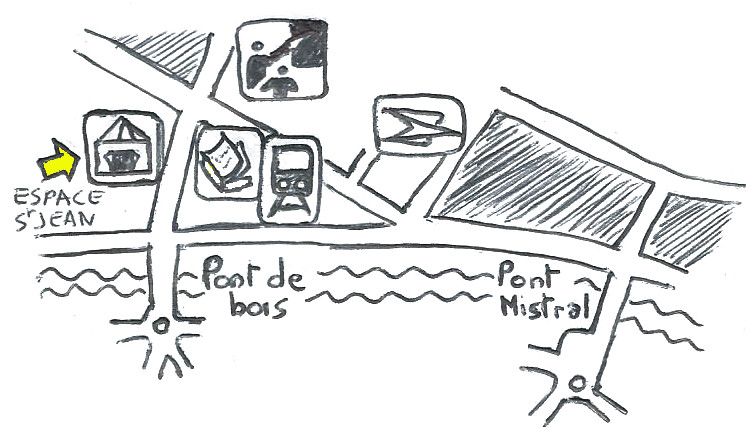 ESPACE
St JEAN
Pont de
bois
Pont
Mistral